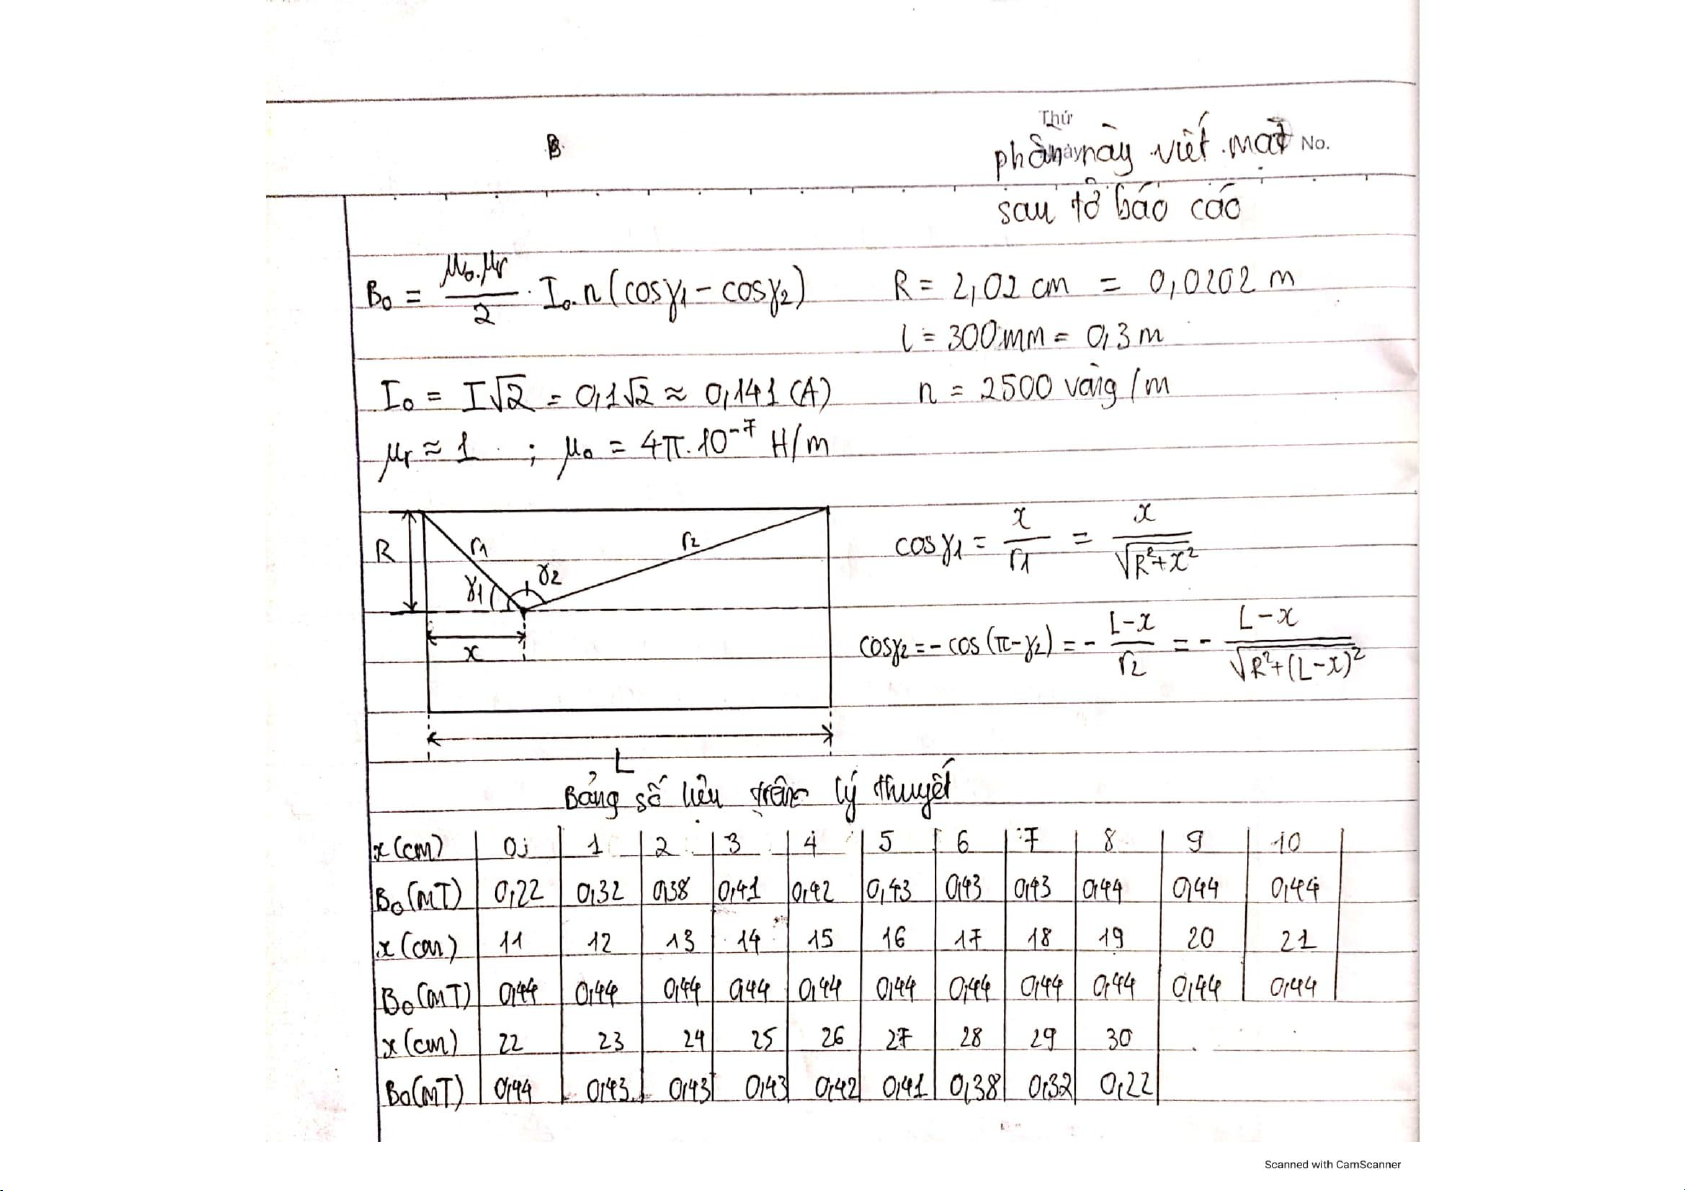 Thứ
B
phần này viết mặt No.
sau tờ báo cáo
B₀ = μ₀.μr/2 . I₀.n(cosγ₁ - cosγ₂) R = 2,02 cm = 0,0202 m
l = 300mm = 0,3 m
I₀ = I√2 = 0,1√2 ≈ 0,141 (A) n = 2500 vòng/m
μr ≈ 1 ; μ₀ = 4π.10⁻⁷ H/m
R r₁ r₂ γ₁ γ₂ x L
cosγ₁ = x/r₁ = x/√(R²+x²)
cosγ₂ = - cos(π-γ₂) = - L-x/r₂ = - L-x/√(R²+(L-x)²)
Bảng số liệu trên lý thuyết
x(cm) 0 1 2 3 4 5 6 7 8 9 10
B₀(mT) 0,22 0,32 0,38 0,41 0,42 0,43 0,43 0,43 0,44 0,44 0,44
x(cm) 11 12 13 14 15 16 17 18 19 20 21
B₀(mT) 0,44 0,44 0,44 0,44 0,44 0,44 0,44 0,44 0,44 0,44 0,44
x(cm) 22 23 24 25 26 27 28 29 30
B₀(mT) 0,44 0,43 0,43 0,43 0,42 0,41 0,38 0,32 0,22
Scanned with CamScanner